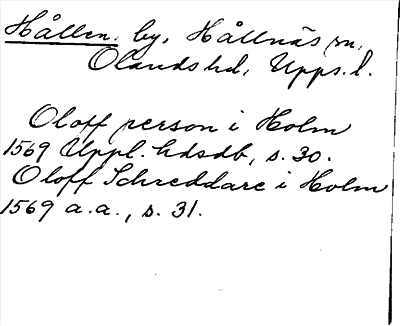 Hållen, by, Hållnäs sn,
Olands hd, Upps. l.
Oloff person i Holm
1569 Uppl. hdsdb, s. 30.
Oloff Schreddare i Holm
1569 a.a., s. 31.